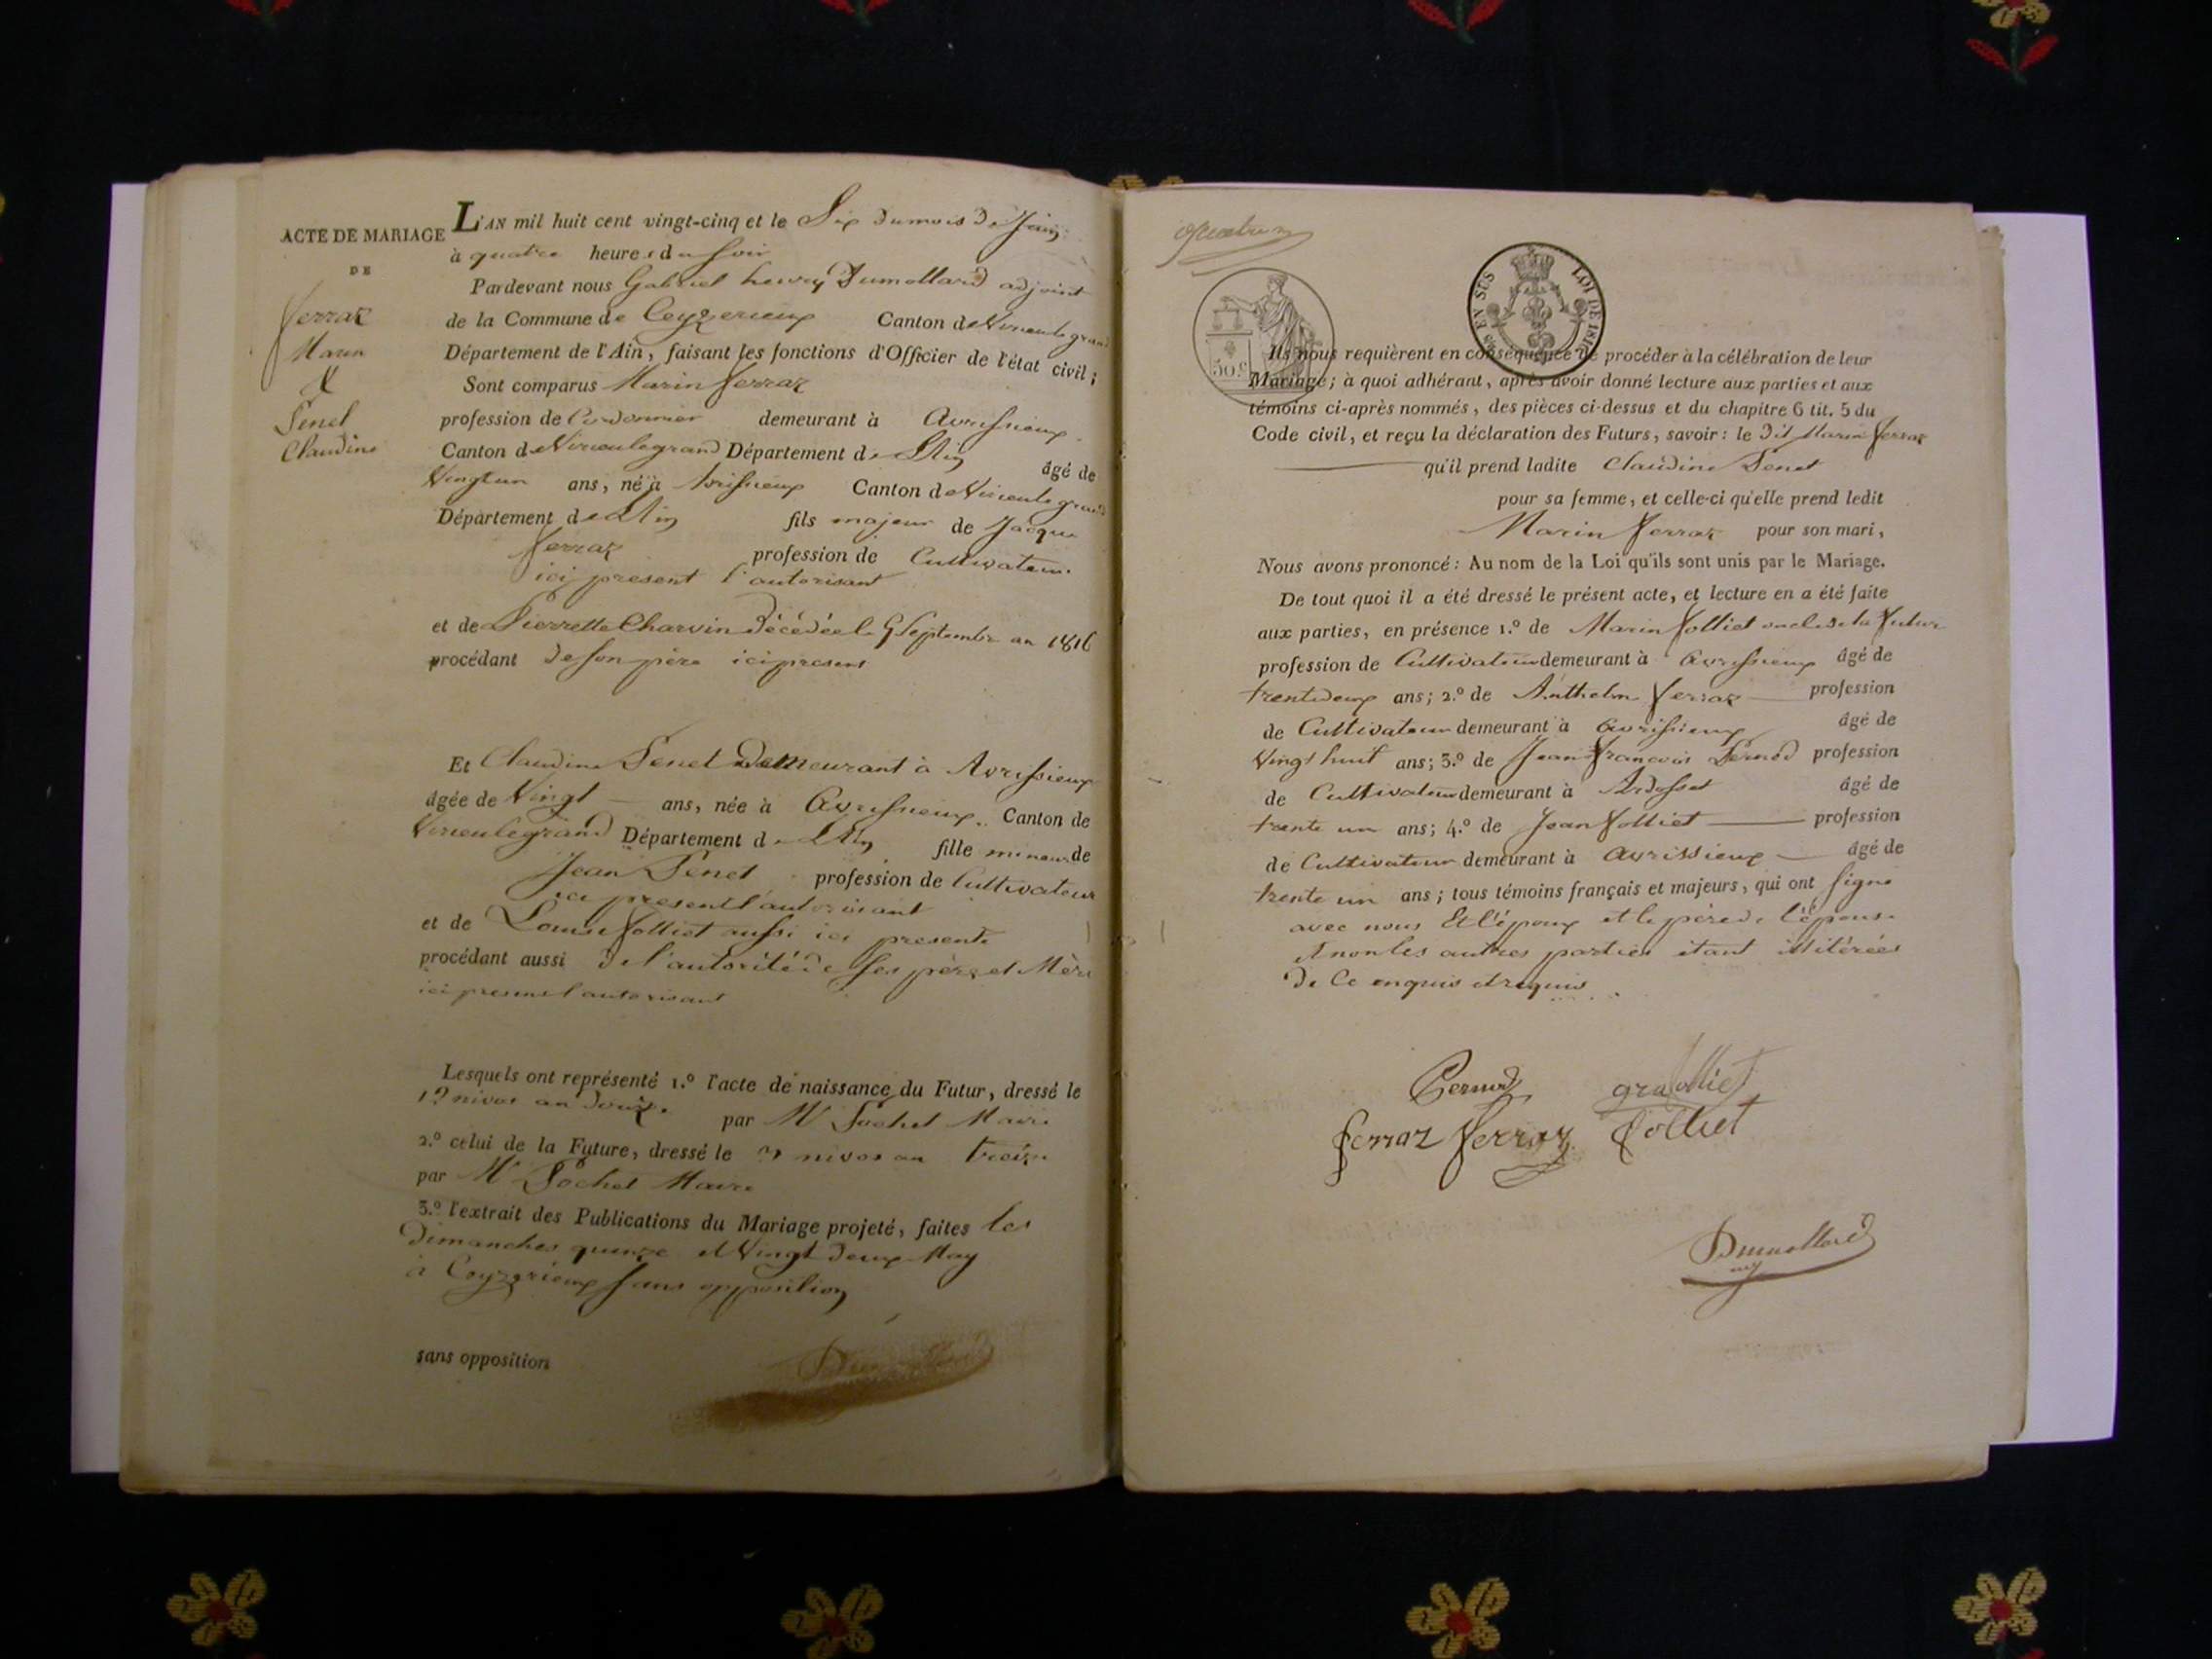 ACTE DE MARIAGE
DE
Ferraz
Marin
&
Penet
Claudine
L'AN mil huit cent vingt-cinq et le Six du mois de Juin
à quatre heures du Soir
Pardevant nous Gabriel henry Dumollard adjoint
de la Commune de Ceyzerieux Canton de Virieulegrand
Département de l'Ain, faisant les fonctions d'Officier de l'état civil;
Sont comparus Marin Ferraz
profession de Cordonnier demeurant à Avrissieux
Canton de Virieulegrand Département de L'Ain âgé de
Vingtun ans, né à Avrissieux Canton de Virieulegrand
Département de L'Ain fils majeur de Jacque
Ferraz profession de Cultivateur
ici present l'autorisant
et de Pierrette Charvin décédée le 9 Septembre an 1816
procédant de son père ici present
Et Claudine Penet Demeurant à Avrissieux
âgée de Vingt ans, née à Avrissieux. Canton de
Virieulegrand Département de L'Ain fille mineur de
Jean Penet profession de Cultivateur
ici present l'autorisant
et de Louise Folliet aussi ici presente
procédant aussi de l'autorité de Ses père et Mère
ici present l'autorisant
Lesquels ont représenté 1.º l'acte de naissance du Futur, dressé le
12 nivos an douze. par Mr Pochet Maire
2.º celui de la Future, dressé le nivos an treize
par Mr Pochet Maire
3.º l'extrait des Publications du Mariage projeté, faites les
Dimanches quinze et Vingt deux May
à Ceyzerieux sans opposition
sans opposition
Dumollard
LOI DE 1816
EN SUS
50 c
Ils nous requièrent en conséquence de procéder à la célébration de leur
Mariage; à quoi adhérant, après avoir donné lecture aux parties et aux
témoins ci-après nommés, des pièces ci-dessus et du chapitre 6 tit. 5 du
Code civil, et reçu la déclaration des Futurs, savoir: le dit Marin Ferraz
qu'il prend ladite Claudine Penet
pour sa femme, et celle-ci qu'elle prend ledit
Marin Ferraz pour son mari,
Nous avons prononcé: Au nom de la Loi qu'ils sont unis par le Mariage.
De tout quoi il a été dressé le présent acte, et lecture en a été faite
aux parties, en présence 1.º de Marin Folliet oncle de la Future
profession de Cultivateur demeurant à Avrissieux âgé de
trentedeux ans; 2.º de Anthelm Ferraz profession
de Cultivateur demeurant à Avrissieux âgé de
Vingt huit ans; 3.º de Jean françois Pernod profession
de Cultivateur demeurant à Ardosset âgé de
trente un ans; 4.º de Jean Folliet profession
de Cultivateur demeurant à Avrissieux âgé de
trente un ans; tous témoins français et majeurs, qui ont signé
avec nous Et l'époux et le père de l'épouse
et non les autres parties étant illitérées
de Ce enquis et requis
Pernod
ferraz Ferraz Folliet
Dumollard